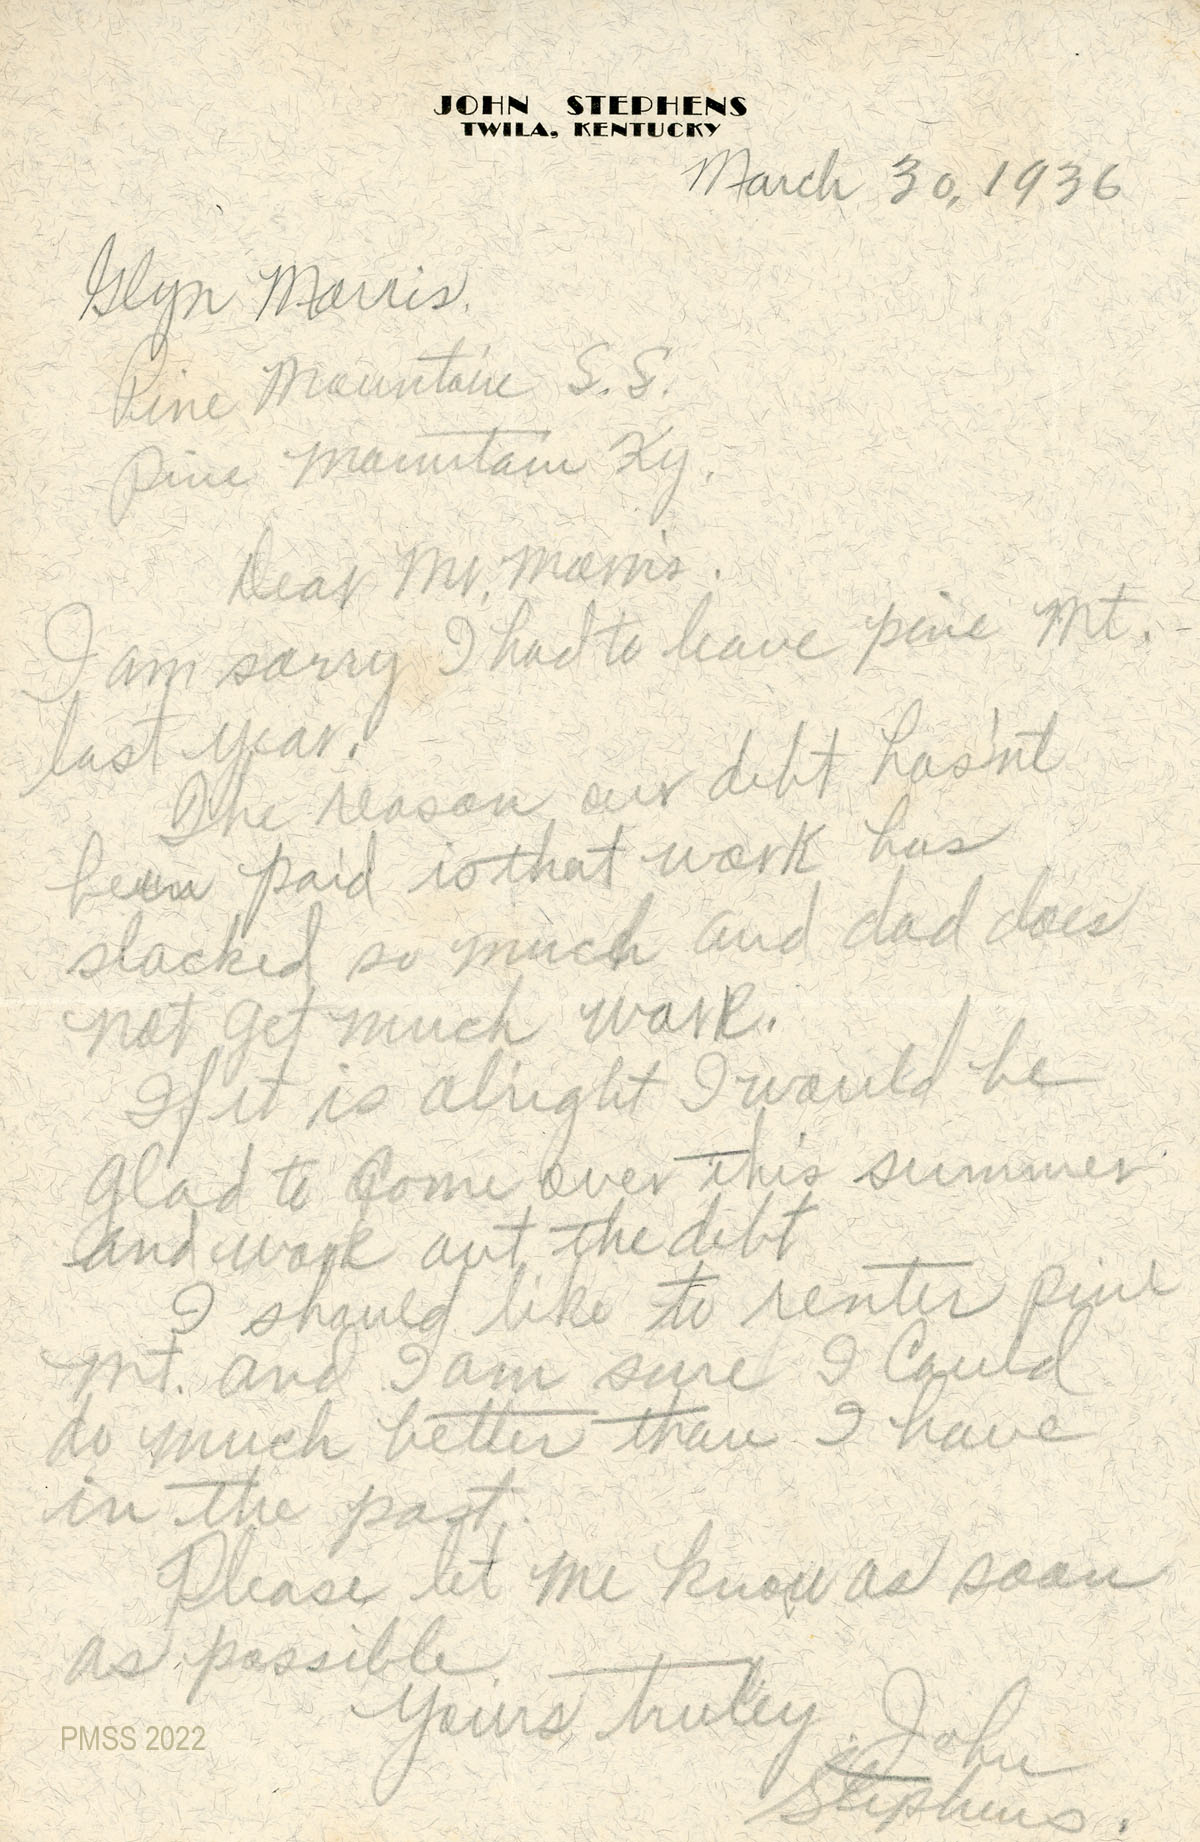 JOHN STEPHENS
TWILA, KENTUCKY
March 30, 1936
Glyn Morris.
Pine Mountain S.S.
Pine Mountain Ky.
Dear Mr. Morris.
I am sorry I had to leave pine Mt.
last year.
The reason our debt has'nt
been paid is that work has
slacked so much and dad does
not get much work.
If it is alright I would be
glad to come over this summer
and work out the debt
I should like to renter pine
Mt. and I am sure I Could
do much better than I have
in the past.
Please let me know as soon
as possible.
Yours truley, John
Stephens.
PMSS 2022